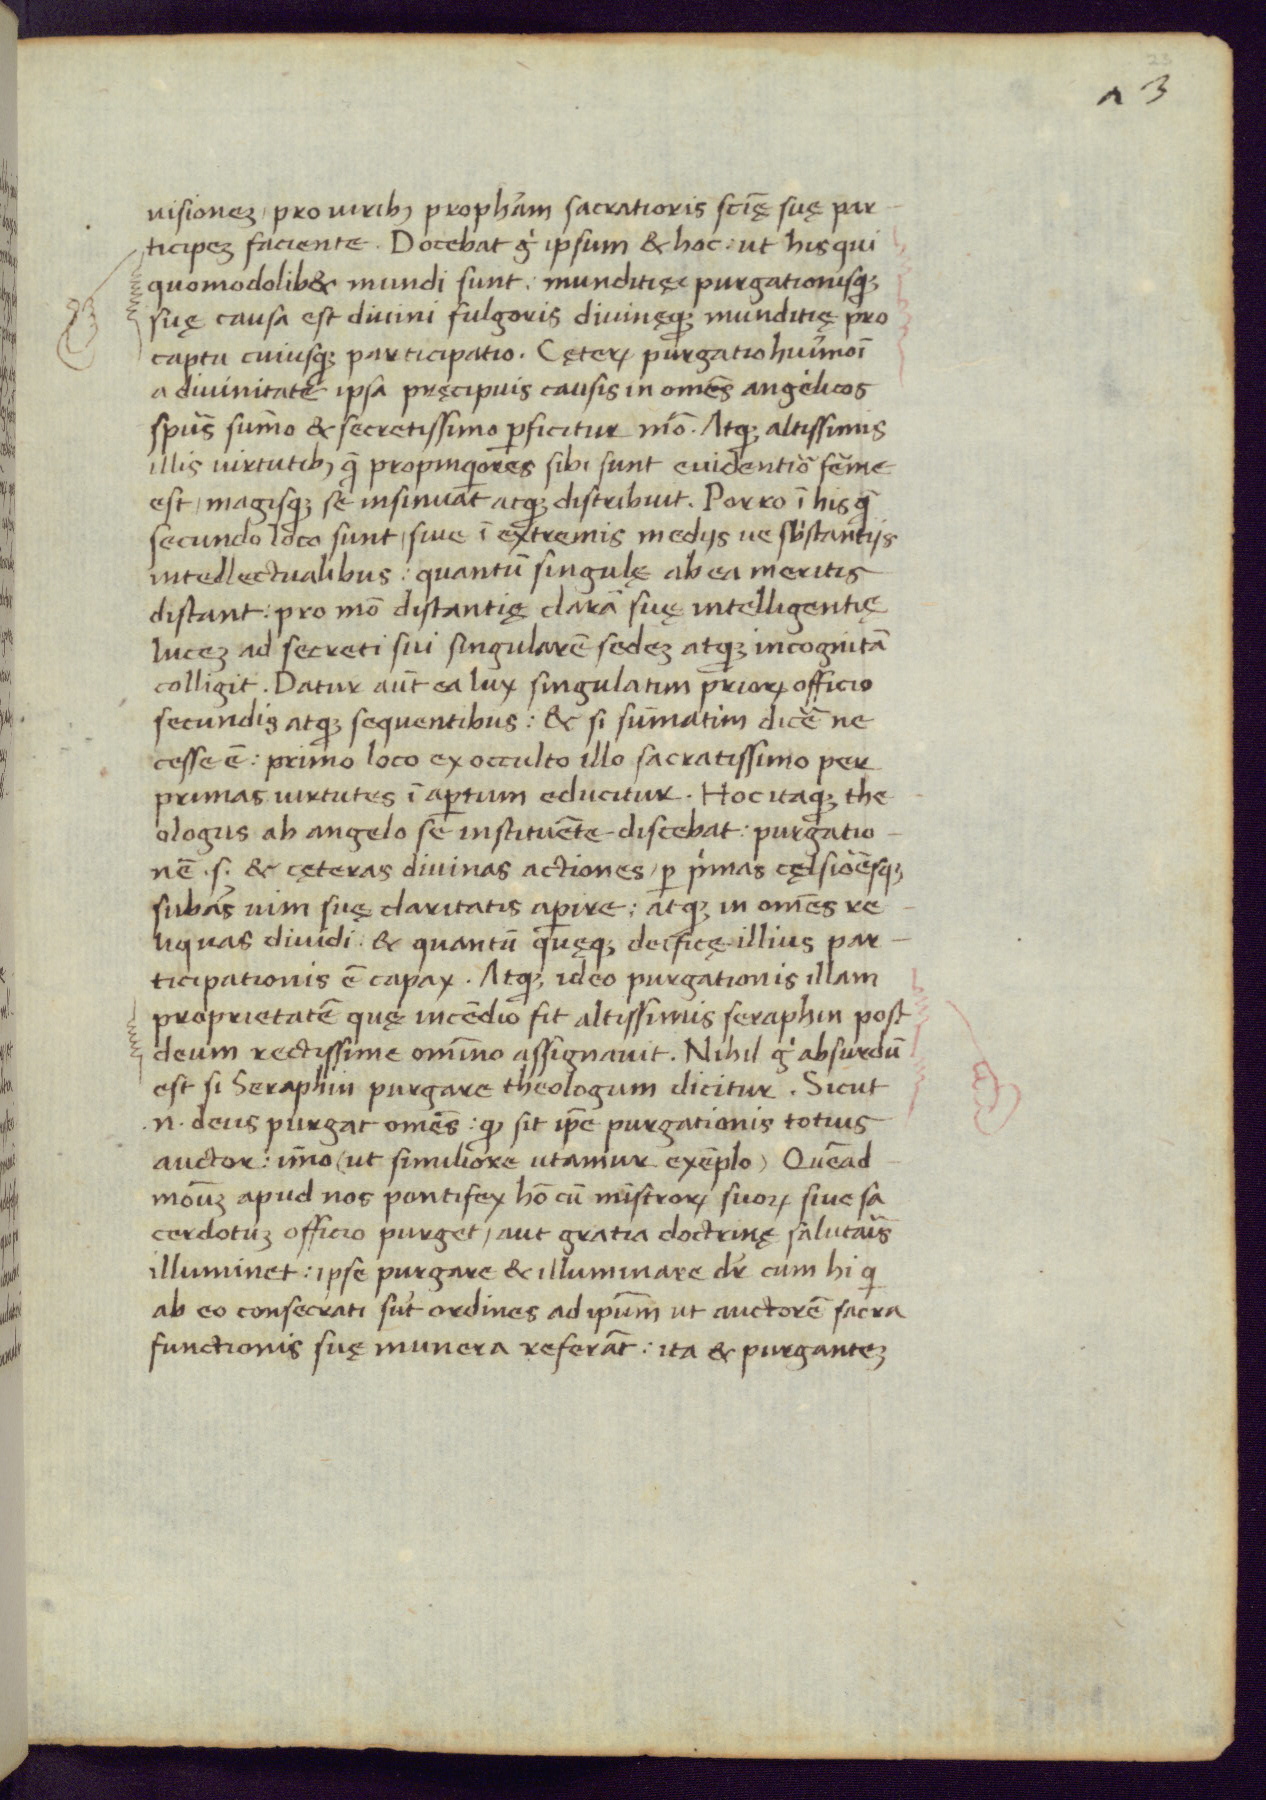 23
a 3
uisionez, pro uirib; prophām sacratioris scīę suę par-
ticipez faciente. Docebat g̍ ipsum & hoc: ut his qui
quomodolib& mundi sunt: munditięc purgationisq;
suę causa est diuini fulgoris diuinęq; munditię pro
captu cuiusq; participatio. Cęterꝝ purgatio huiꝰmoi
a diuinitate ipsa pręcipuis causis in omēs angelicos
spūs sum̄o & secretissimo ꝑficitur mō. Atq; altissimis
illis uirtutib; q̄ propinq̍ores sibi sunt euidentiꝰ fēme
est, magisq; se insinuāt atq; distribuit. Porro ī his q̄
secundo loco sunt, siue ī extremis medijs ue sb̍stantijs
intellectualibus: quantū singulę ab ea meritis
distant: pro mō distantię clarā suę intelligentię
lucez ad secreti sui singularē sedez atq; incognitā
colligit. Datur aūt ea lux singulatim priorꝝ officio
secundis atq; sequentibus: & si sum̄atim dicē ne
cesse ē: primo loco ex occulto illo sacratissimo per
primas uirtutes ī aꝑtum educitur. Hoc itaq; the-
ologus ab angelo se instituēte discebat: purgatio-
nē .s. & cęteras diuinas actiones, ꝑ p̍mas cęlsiōēsq;
subās uim suę claritatis aꝑire: atq; in omēs re-
liquas diuidi: & quantū quęq; deificę illius par-
ticipationis ē capax. Atq; ideo purgationis illam
proprietatē quę incēdio fit altissimis seraphin post
deum rectissime omīno assignauit. Nihil g̍ absurdū
est si Seraphin purgare theologum dicitur. Sicut
.n. deus purgat omēs: qꝫ sit ip̄e purgationis totius
auctor: im̄o (ut similiore utamur exēplo) Quēad-
moūz apud nos pontifex hō cū mīstrorꝝ suorꝝ siue sa
cerdotuz officio purget, aut gratia doctrinę salutais̄
illuminet: ipse purgare & illuminare dr̄ cum hi q
ab eo consecrati sūt ordines ad ipūm ut auctorē sacra
functionis suę munera referāt: ita & purgantez